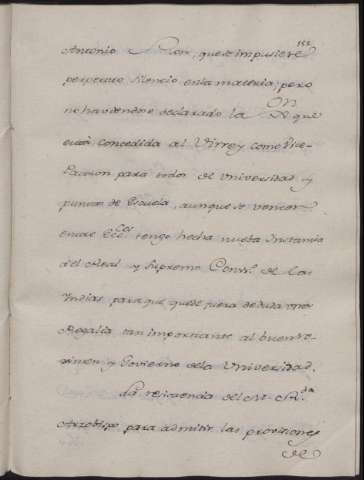 152
Antonio que se impusiere
perpetuo silencio en la materia; pero
no haviendose declarado la Jon que
está concedida al Virrey como Vice-
Patron para todos de Universidad y
puntos de Escuela, aunque se
entre Eccos tengo hecha nueba Instancia
al Real y Supremo Consº de las
Indias, para que quede fuera de duda una
Regalia tan importante al buen re-
gimen, y Govierno de la Universidad.
La resistencia del M. Rdo
Arzobispo para admitir las provisiones
de